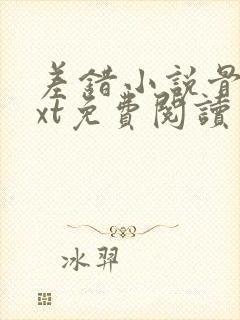 差錯小說最
xt免費閱讀
冰羿